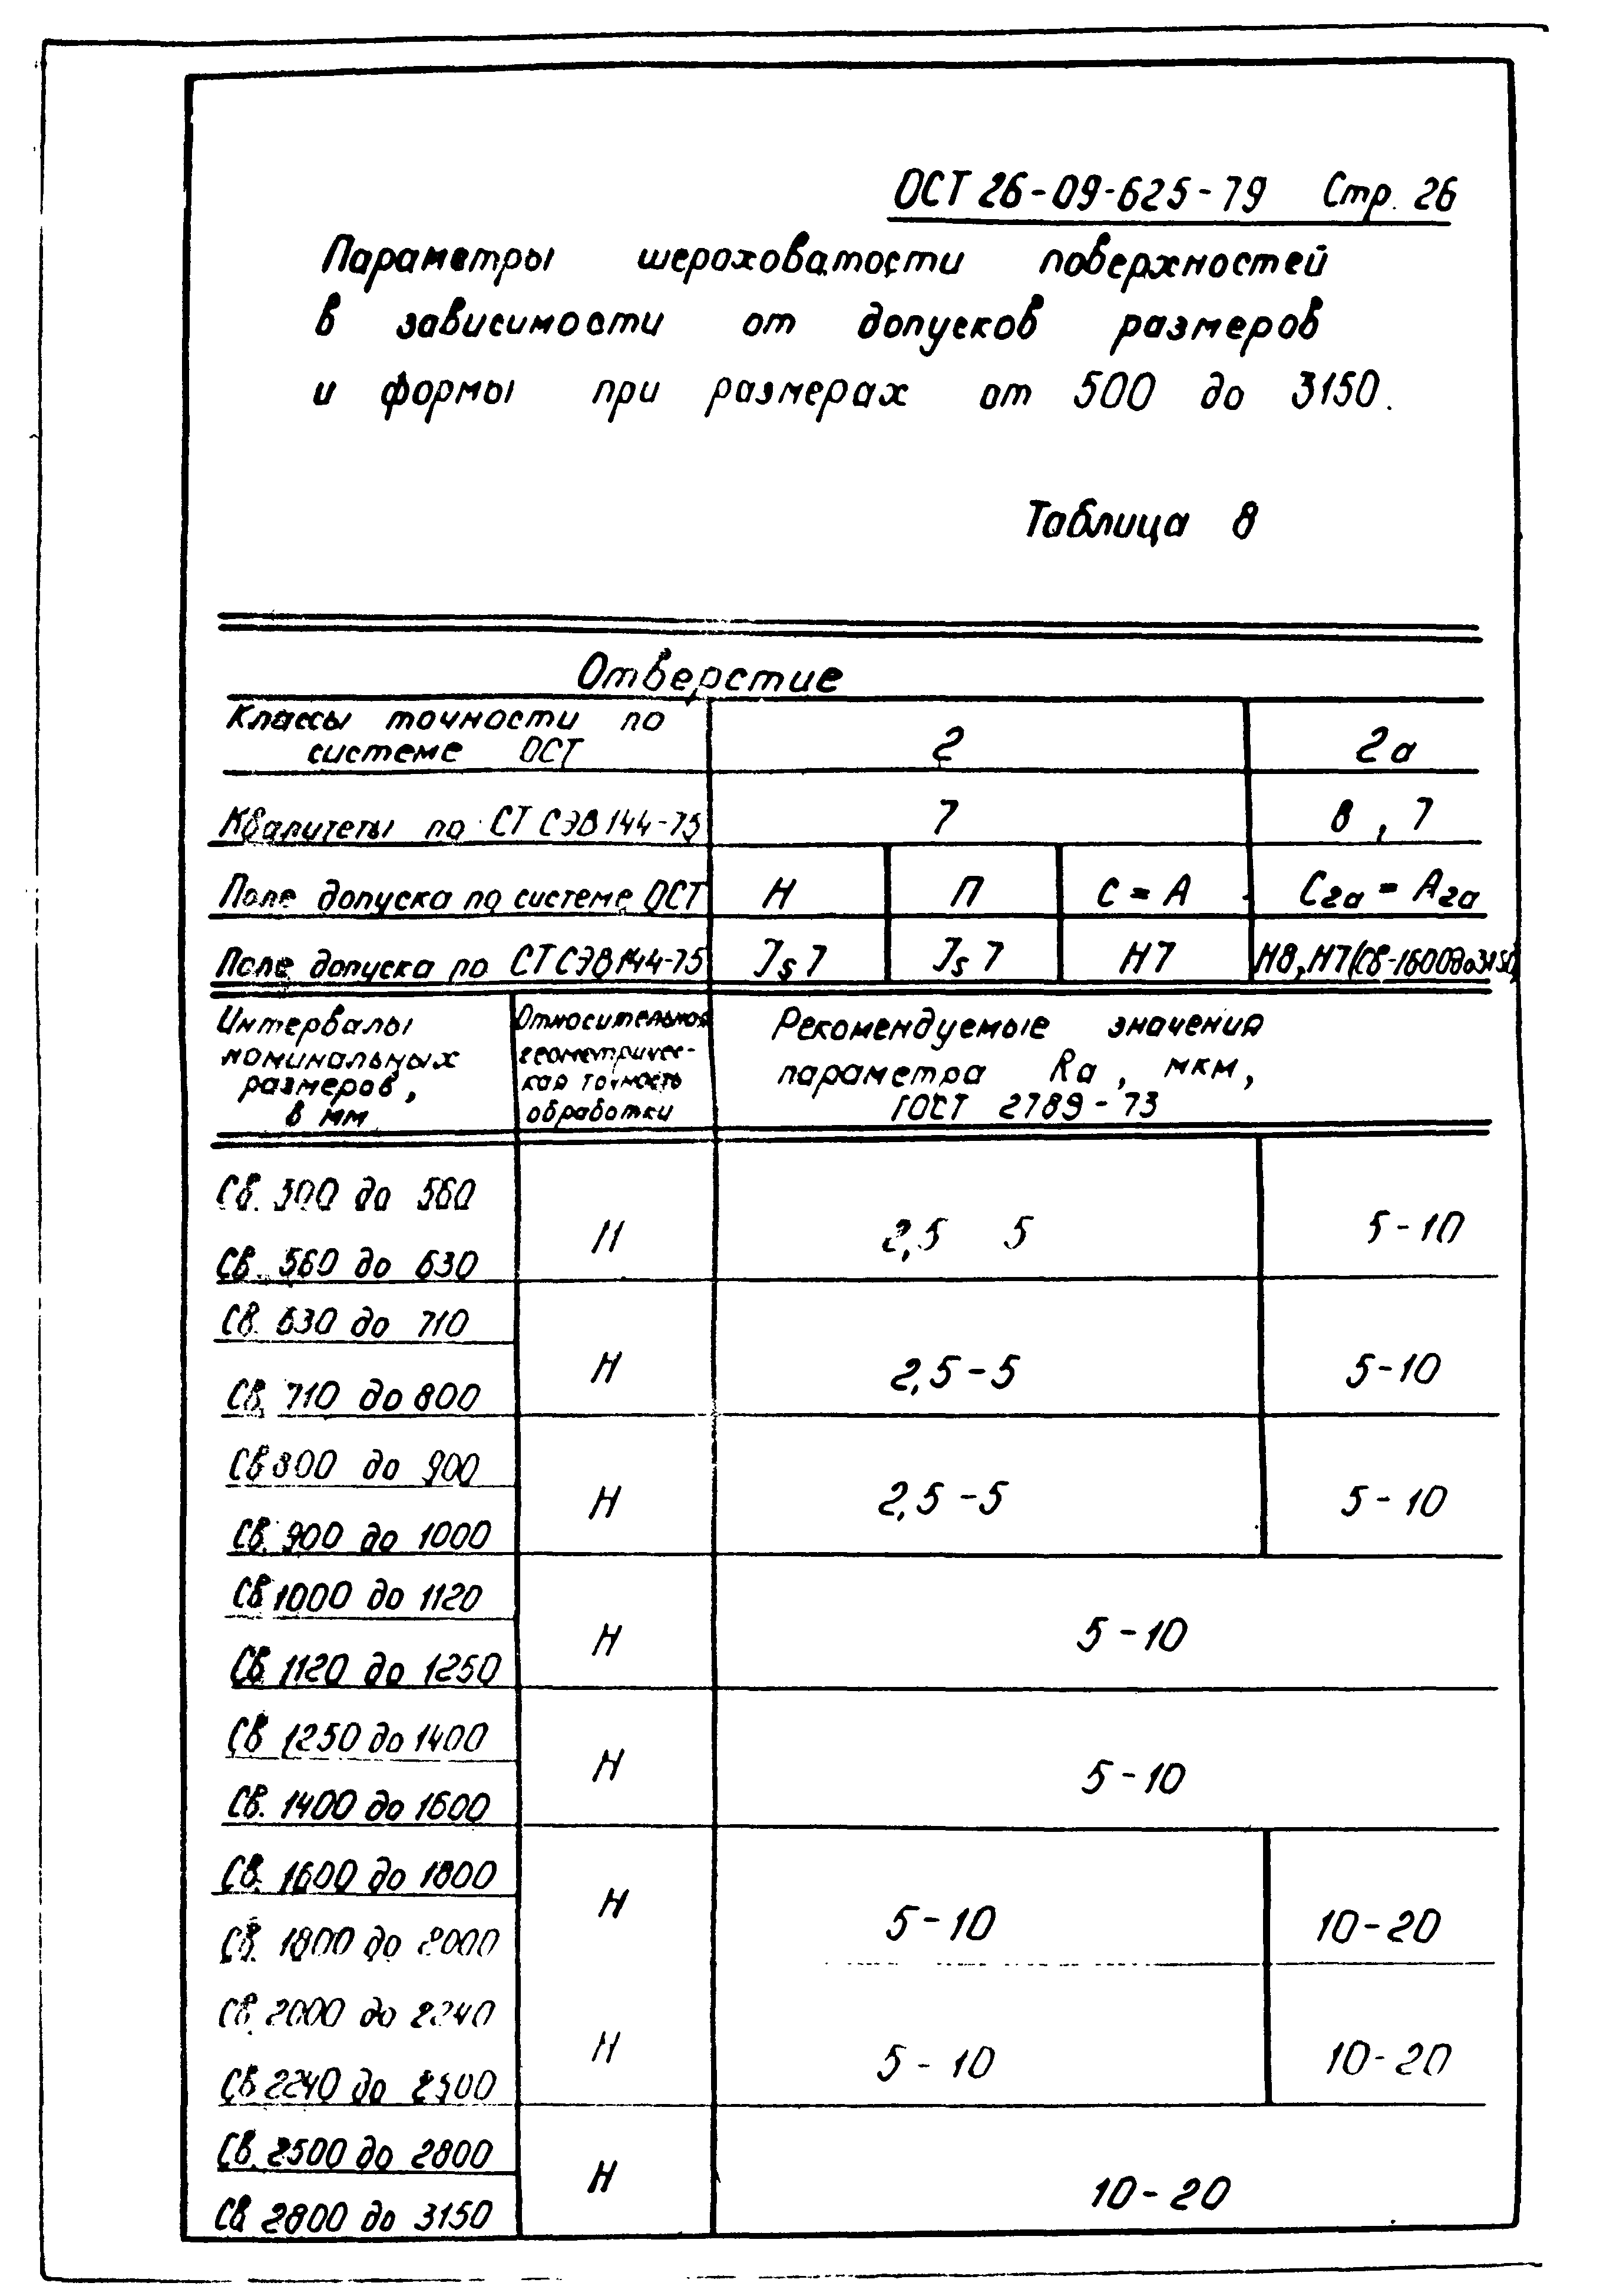 ОСТ 26-09-625-79 Стр. 26
Параметры шероховатости поверхностей
в зависимости от допусков размеров
и формы при размерах от 500 до 3150.
Таблица 8
Отверстие
Классы точности по
системе ОСТ
2
2а
Квалитеты по СТ СЭВ 144-75
7
8, 7
Поле допуска по системе ОСТ
Н
П
С = А
С2а = А2а
Поле допуска по СТ СЭВ 144-75
Js 7
Js 7
Н7
Н8, Н7 (св-1600 до 3150)
Интервалы
номинальных
размеров,
в мм
Относительная
геометричес-
кая точность
обработки
Рекомендуемые значения
параметра Ra, мкм,
ГОСТ 2789-73
Св. 500 до 560
Св. 560 до 630
Н
2,5 5
5-10
Св. 630 до 710
Св. 710 до 800
Н
2,5-5
5-10
Св 800 до 900
Св. 900 до 1000
Н
2,5-5
5-10
Св 1000 до 1120
Св 1120 до 1250
Н
5-10
Св 1250 до 1400
Св. 1400 до 1600
Н
5-10
Св. 1600 до 1800
Св. 1800 до 2000
Н
5-10
10-20
Св 2000 до 2240
Св 2240 до 2500
Н
5-10
10-20
Св. 2500 до 2800
Св 2800 до 3150
Н
10-20